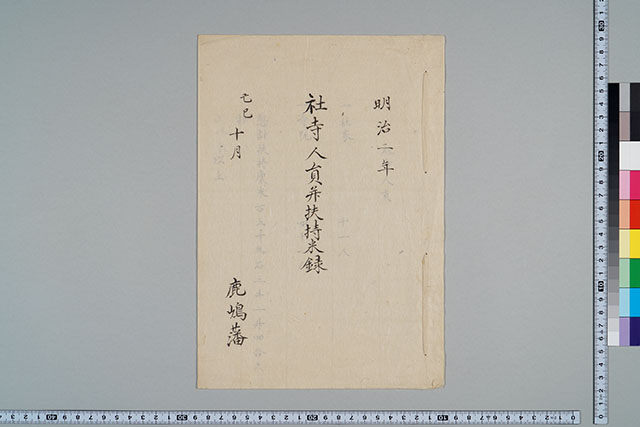 明治二年
社寺人員并扶持米録
己巳
十月
鹿嶋藩